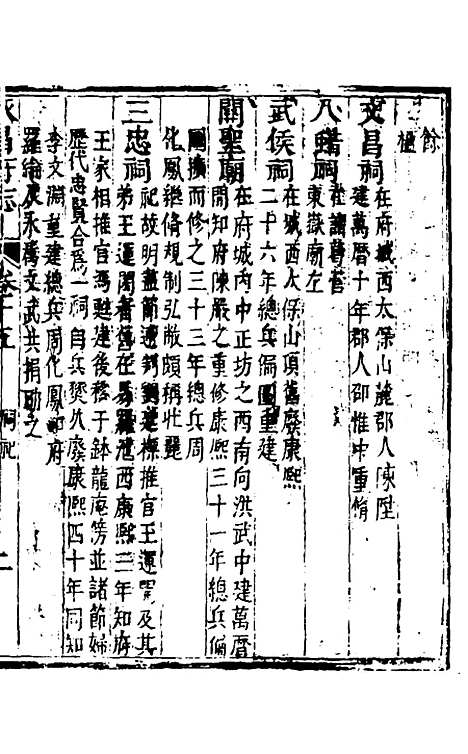 餘
楹
文昌祠在府城西太保山麓郡人陳陞
建萬曆十年郡人邵惟中重脩
八蜡祠在諸葛營
東嶽廟左
武侯祠在城西太保山頂舊廢康熙
二十六年總兵偏圖重建
關聖廟在府城內中正坊之西南向洪武中建萬曆
間知府陳嚴之重修康熙三十一年總兵偏
圖擴而修之三十三年總兵周
化鳳繼脩規制弘敞頗稱壯麗
三忠祠祀故明盡節遵判劉廷標推官王運開及其
弟王運閎舊在易羅池西康熙二年知府
王家相推官為甦建後移于鉢龍庵旁並諸節婦
歷代忠賢合為一祠自兵燹久廢康熙四十年同知
李文淵重建總兵周化鳳知府
羅綸及永騰文武共捐助之
永昌府志 卷十五 祠祀 二